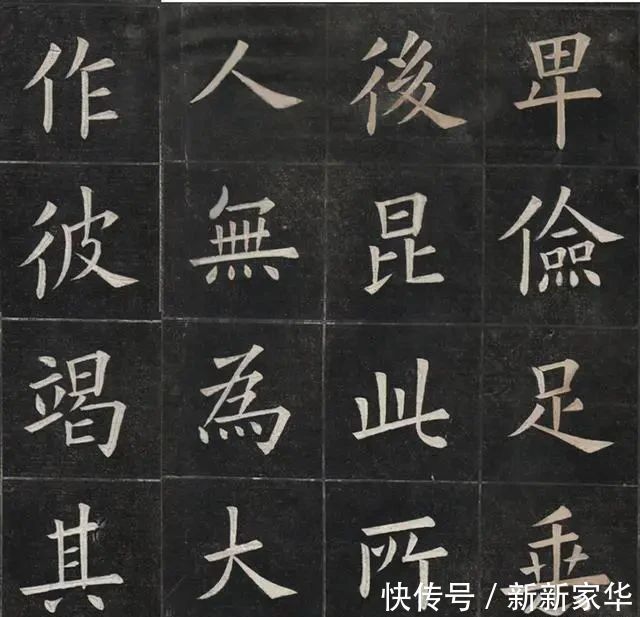 卑儉足垂
後昆此所
人無為大
作彼竭其
快传号 / 新新家华